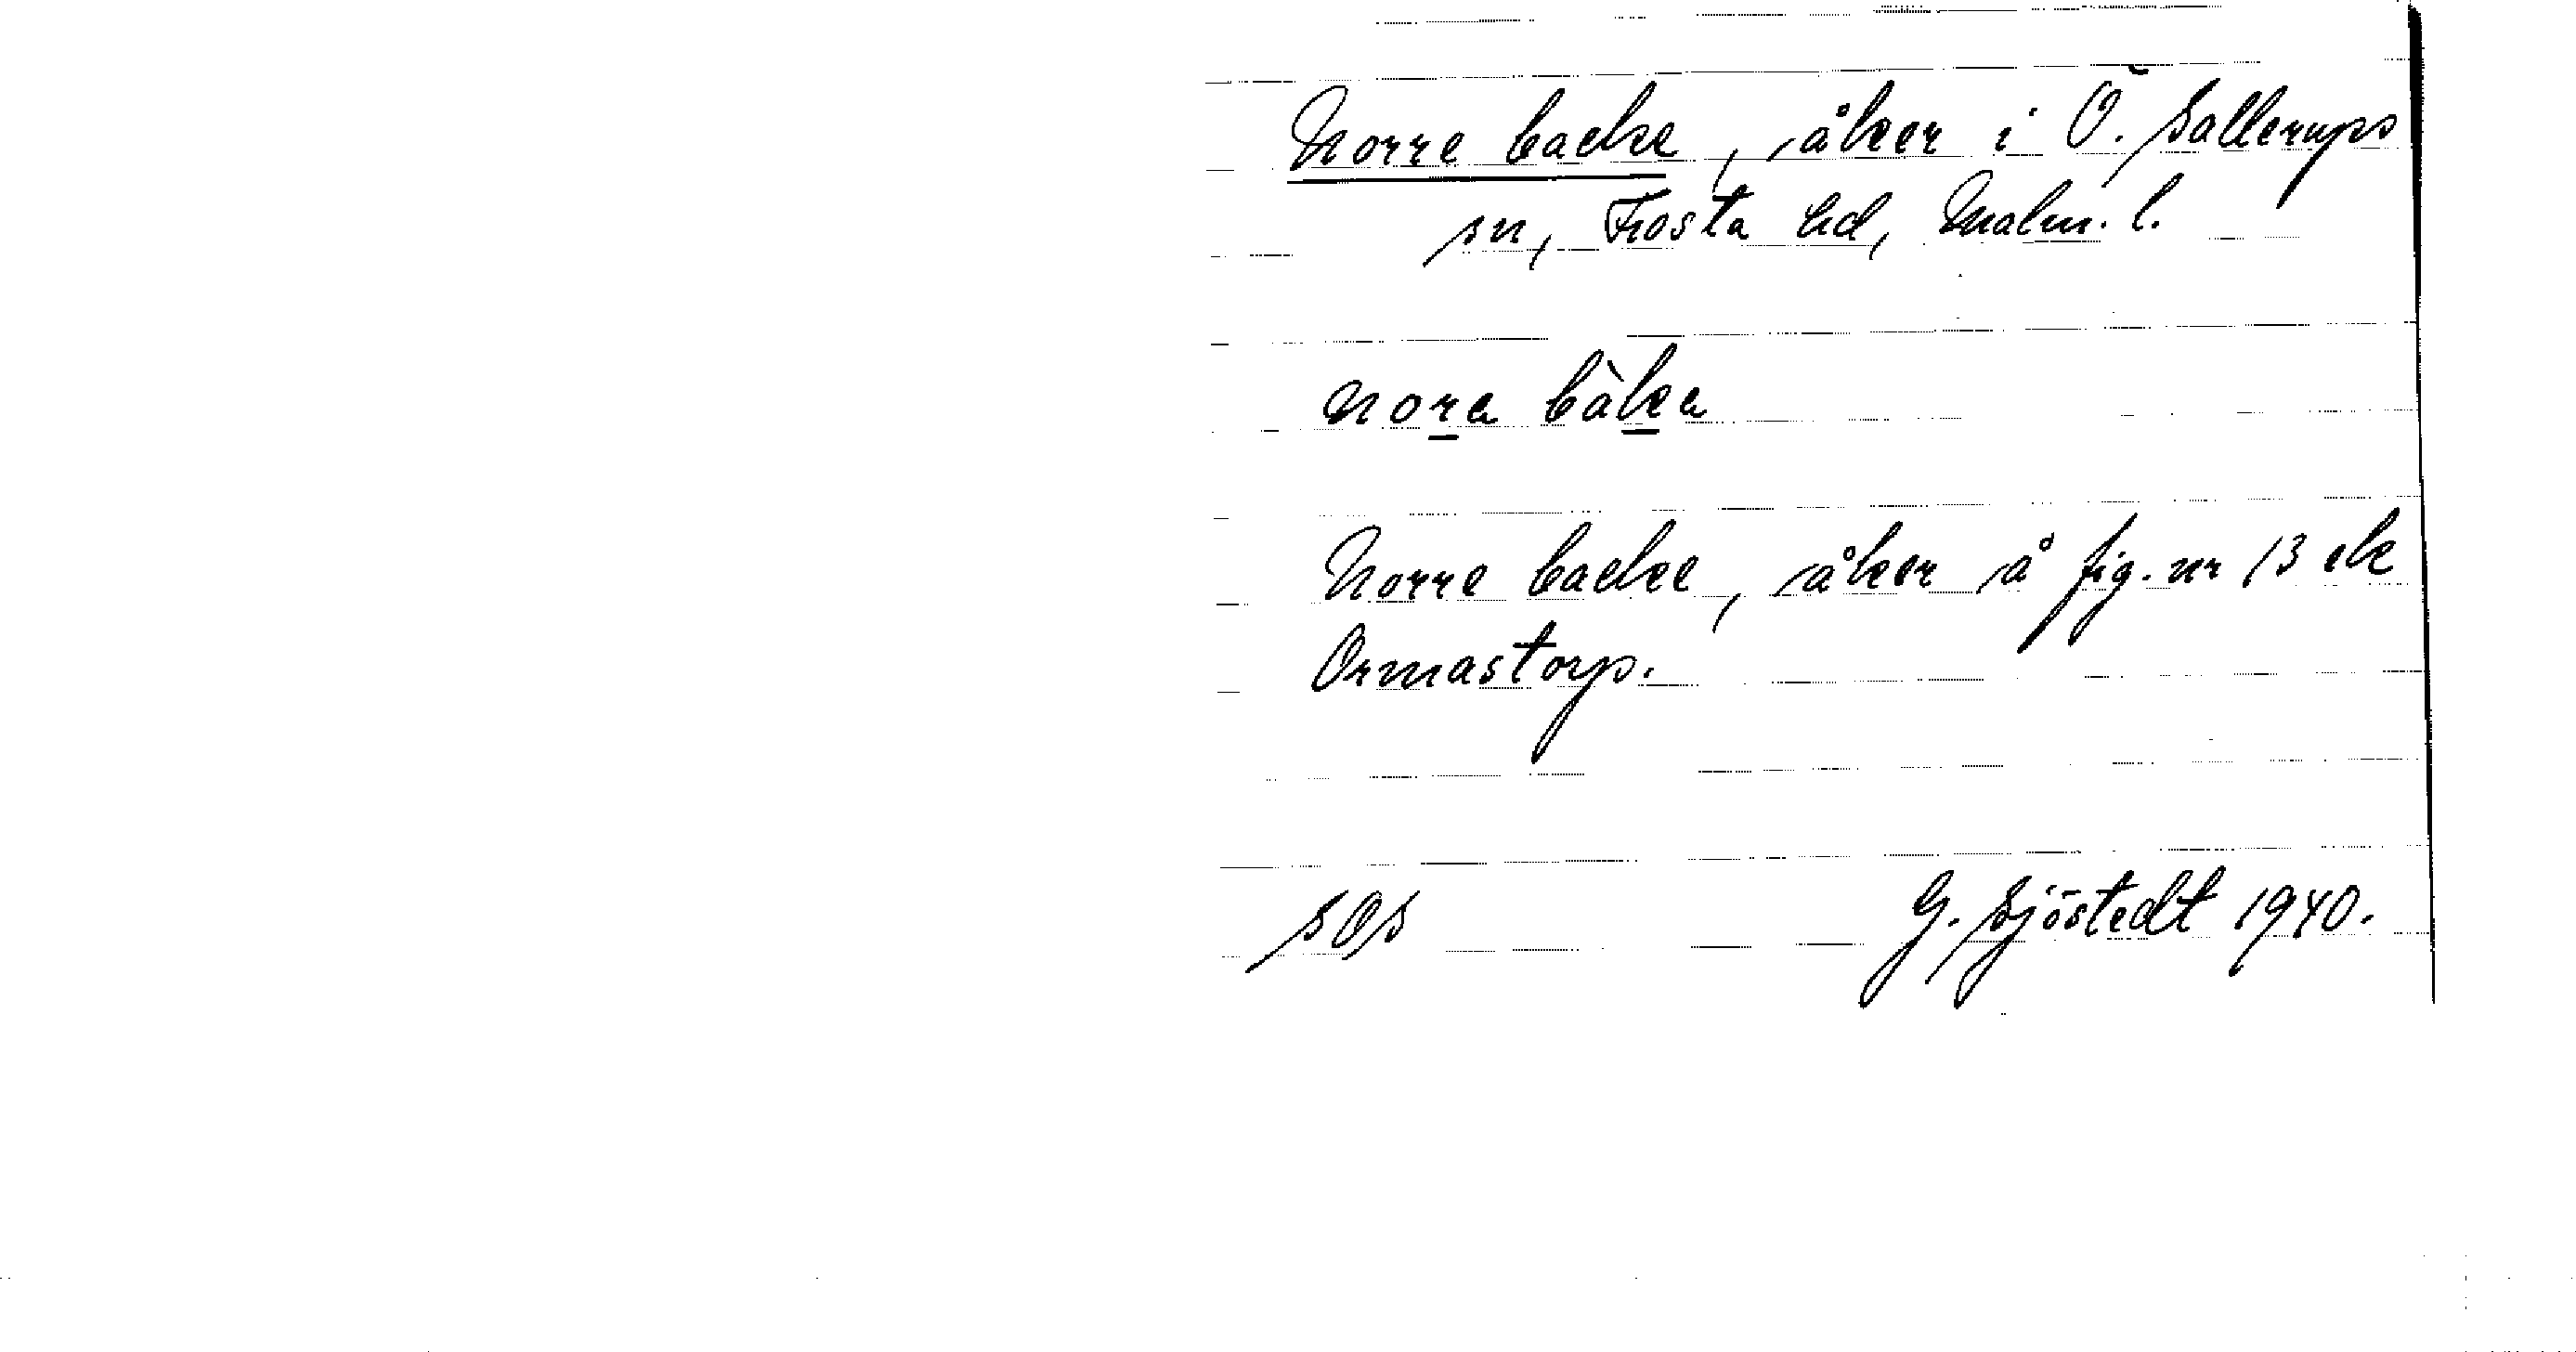 Norre backe, åker i Ö. Sallerups
sn, Frosta hd, Malm. l.
nora bàka
Norre backe, åker på fig. nr 13 ek
Ormastorp.
SOS G. Sjöstedt 1940.